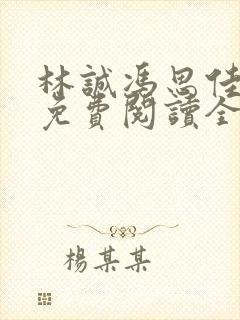 林誠馮思佳
免費閱讀全
楊某某